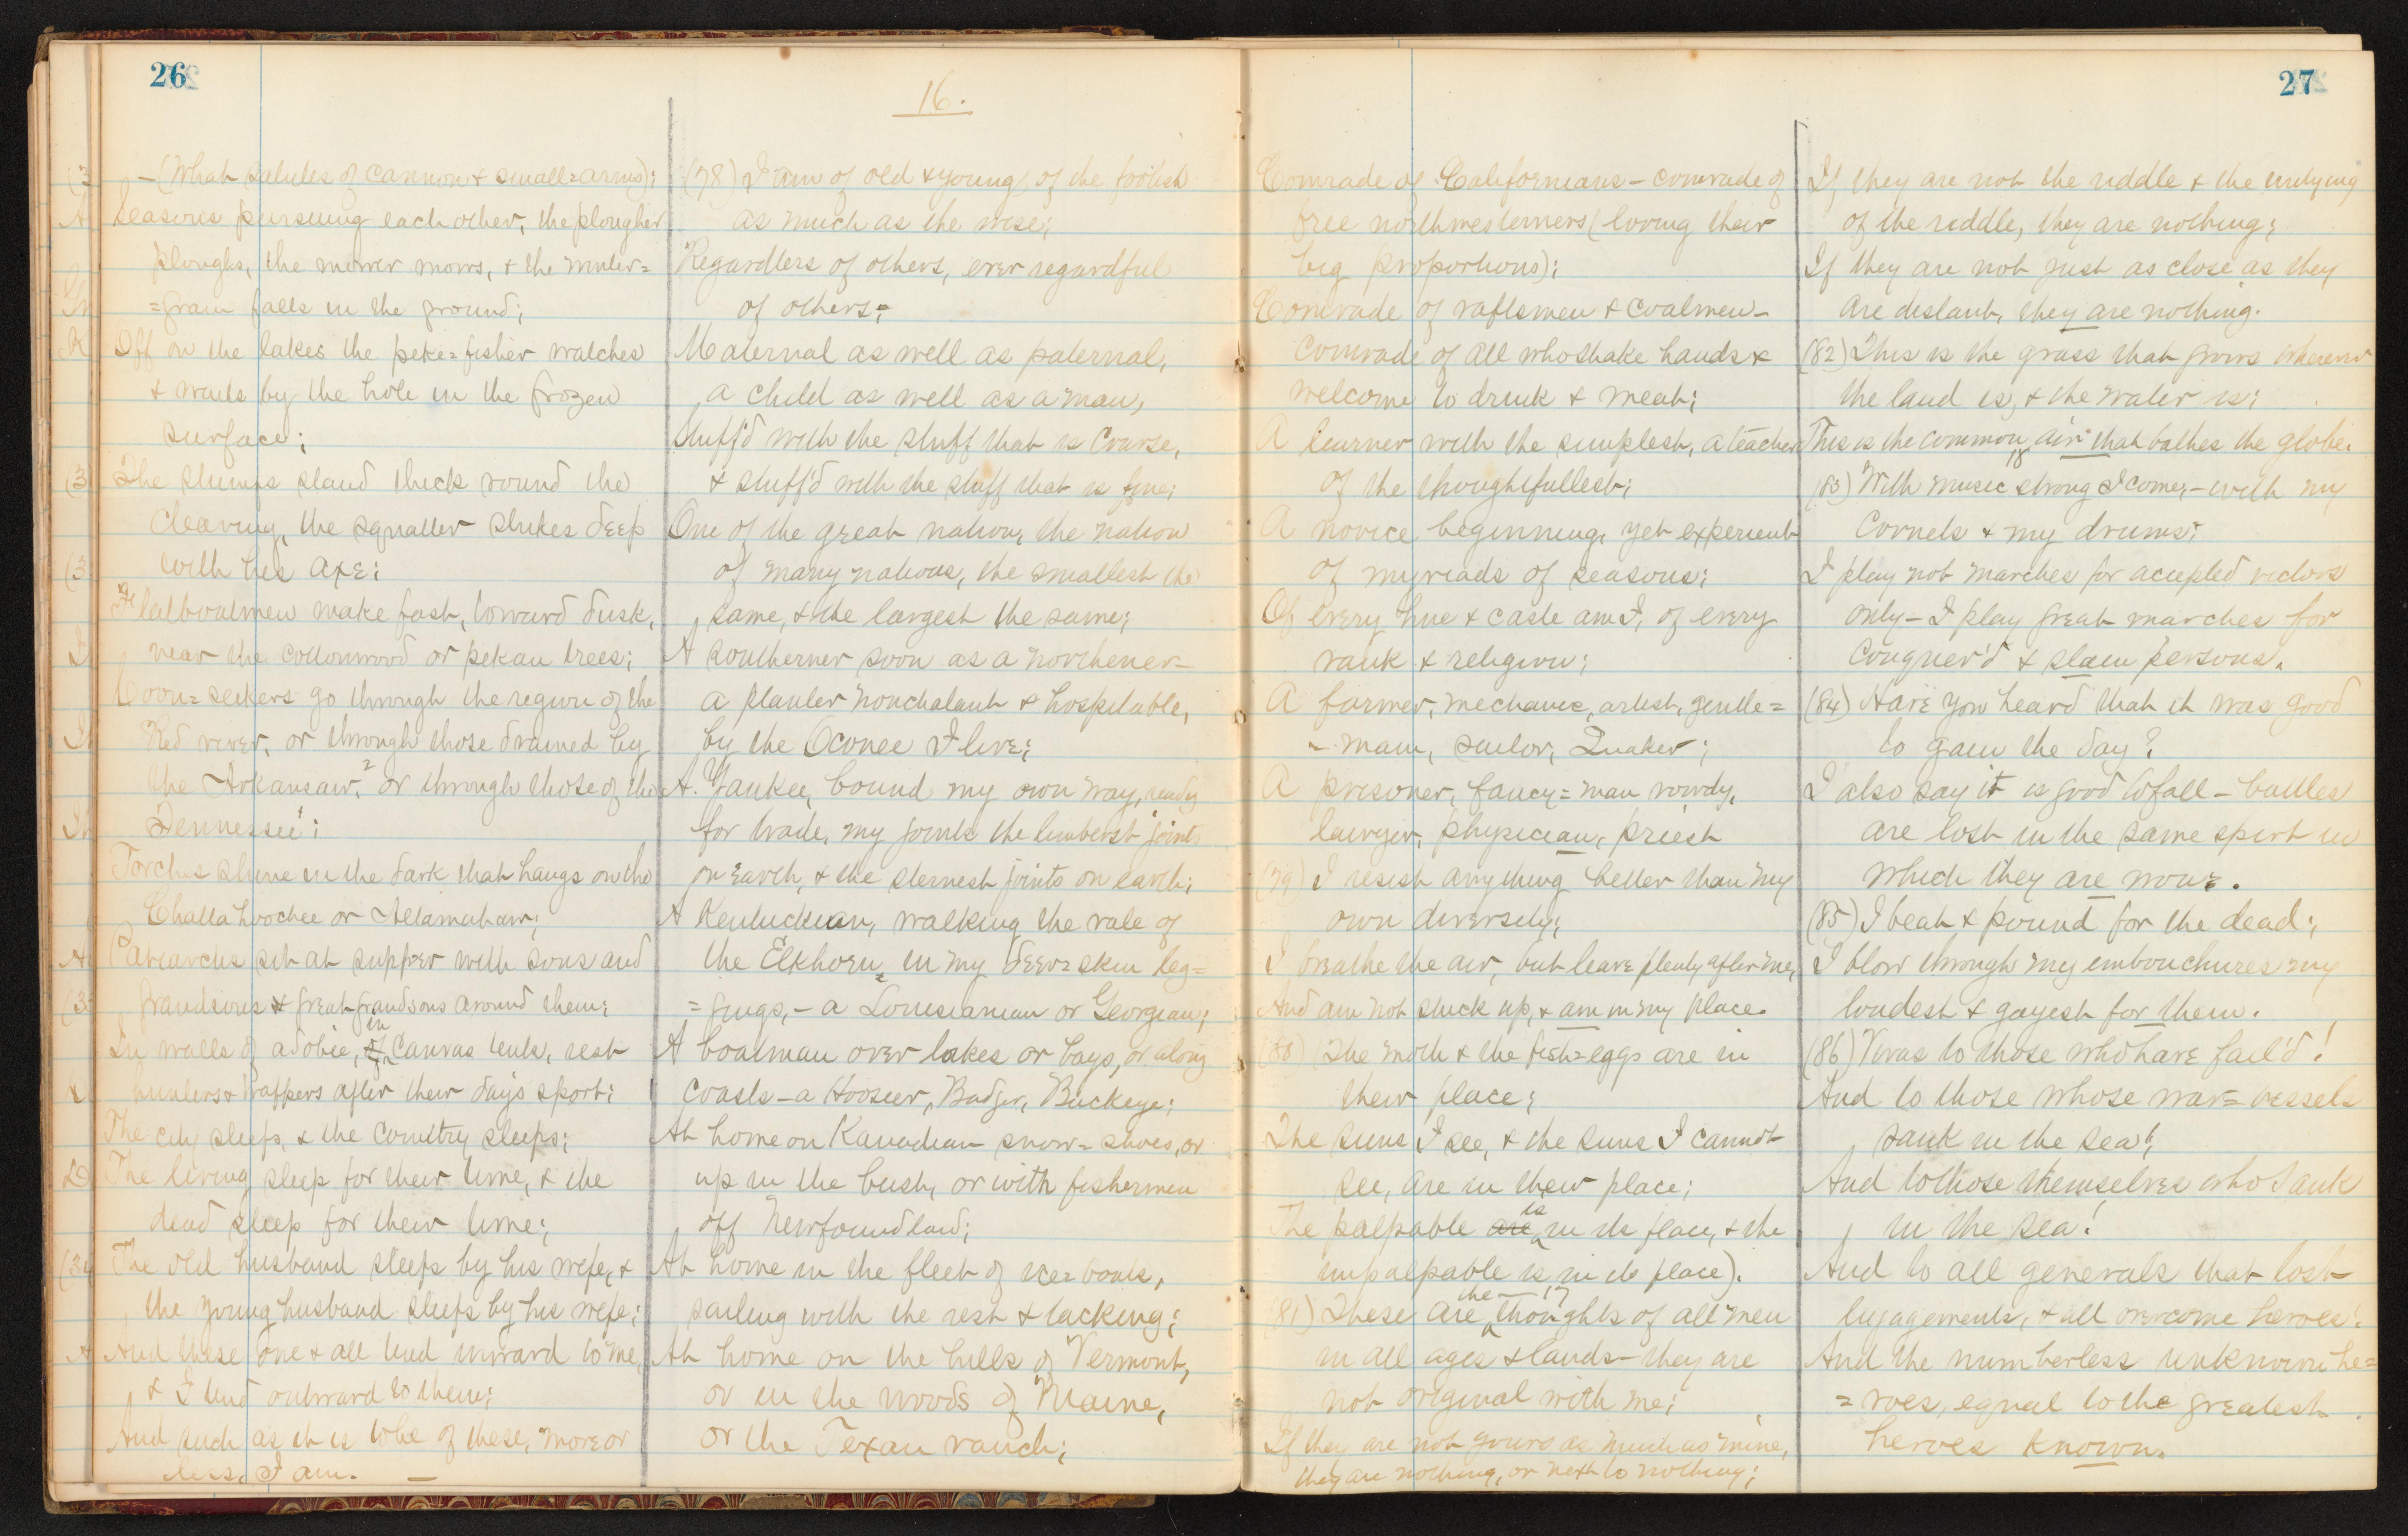 26
16.
— (What salutes of cannon & small=arms);
Seasons pursuing each other, the plougher
ploughs, the mower mows, & the winter=
=grain falls in the ground;
Off on the lakes the pike=fisher watches
& waits by the hole in the frozen
surface;
The stumps stand thick round the
clearing, the squatter strikes deep
with his axe;
Flatboatmen make fast, toward dusk,
near the cottonwood or pekan trees;
Coon=seekers go through the region of the
Red river, or through those drained by
the Arkansaw,² or through those of the
Tennessee¹;
Torches shine in the dark that hangs on the
Chattahoochee or Altamahaw;
Patriarchs sit at supper with sons and
grandsons & great-grandsons around them;
In walls of adobie, in canvas tents, rest
hunters & trappers after their day's sport;
The city sleeps, & the country sleeps;
The living sleep for their time, & the
dead sleep for their time;
The old husband sleeps by his wife, &
the young husband sleeps by his wife;
And these one & all tend inward to me,
& I tend outward to them;
And such as it is to be of these, more or
less, I am. —
(78) I am of old & young, of the foolish
as much as the wise;
Regardless of others, ever regardful
of others;
Maternal as well as paternal,
a child as well as a man,
Stuff'd with the stuff that is coarse,
& stuff'd with the stuff that is fine;
One of the great nation, the nation
of many nations, the smallest the
same, & the largest the same;
A southerner soon as a northener—
a planter nonchalant & hospitable,
by the Oconee I live;
A Yankee, bound my own way, ready
for trade, my joints the limberest joints
on earth, & the sternest joints on earth;
A Kentuckian, walking the vale of
the Elkhorn, in my deer=skin leg=
=gings, — a Louisianian or Georgian;
A boatman over lakes or bays, or along
coasts — a Hoosier, Badger, Buckeye;
At home on Kanadian snow=shoes, or
up in the bush, or with fishermen
off Newfoundland;
At home in the fleet of ice=boats,
sailing with the rest & tacking;
At home on the hills of Vermont,
or in the woods of Maine,
or the Texan ranch;
27
Comrade of Californians — comrade of
free northwesterners (loving their
big proportions);
Comrade of raftsmen & coalmen —
comrade of all who shake hands &
welcome to drink & meat;
A learner with the simplest, a teacher
of the thoughtfullest;
A novice beginning, yet experient
of myriads of seasons;
Of every hue & caste am I, of every
rank & religion;
A farmer, mechanic, artist, gentle=
= man, sailor, Quaker;
A prisoner, fancy=man rowdy,
lawyer, physician, priest
(79) I resist anything better than my
own diversity;
I breathe the air, but leave plenty after me,
And am not stuck up, & am in my place.
(80) (The moth & the fish=eggs are in
their place;
The suns I see, & the suns I cannot
see, are in their place;
The palpable are is in its place, & the
impalpable is in its place).
17
(81) These are the thoughts of all men
in all ages & lands — they are
not original with me;
If they are not yours as much as mine,
they are nothing, or next to nothing;
If they are not the riddle & the untying
of the riddle, they are nothing;
If they are not just as close as they
are distant, they are nothing.
(82) This is the grass that grows wherever
the land is, & the water is;
This is the common air that bathes the globe.
18
(83) With music strong I come, — with my
cornets & my drums;
I play not marches for accepted victors
only — I play great marches for
conquer'd & slain persons.
(84) Have you heard that it was good
to gain the day?
I also say it is good to fall — battles
are lost in the same spirit in
which they are won.
(85) I beat & pound for the dead;
I blow through my embouchures my
loudest & gayest for them.
(86) Vivas to those who have fail'd!
And to those whose war=vessels
sank in the sea!
And to those themselves who sank
in the sea!
And to all generals that lost
engagements, & all overcome heroes!
And the numberless unknown he=
=roes, equal to the greatest
heroes known.